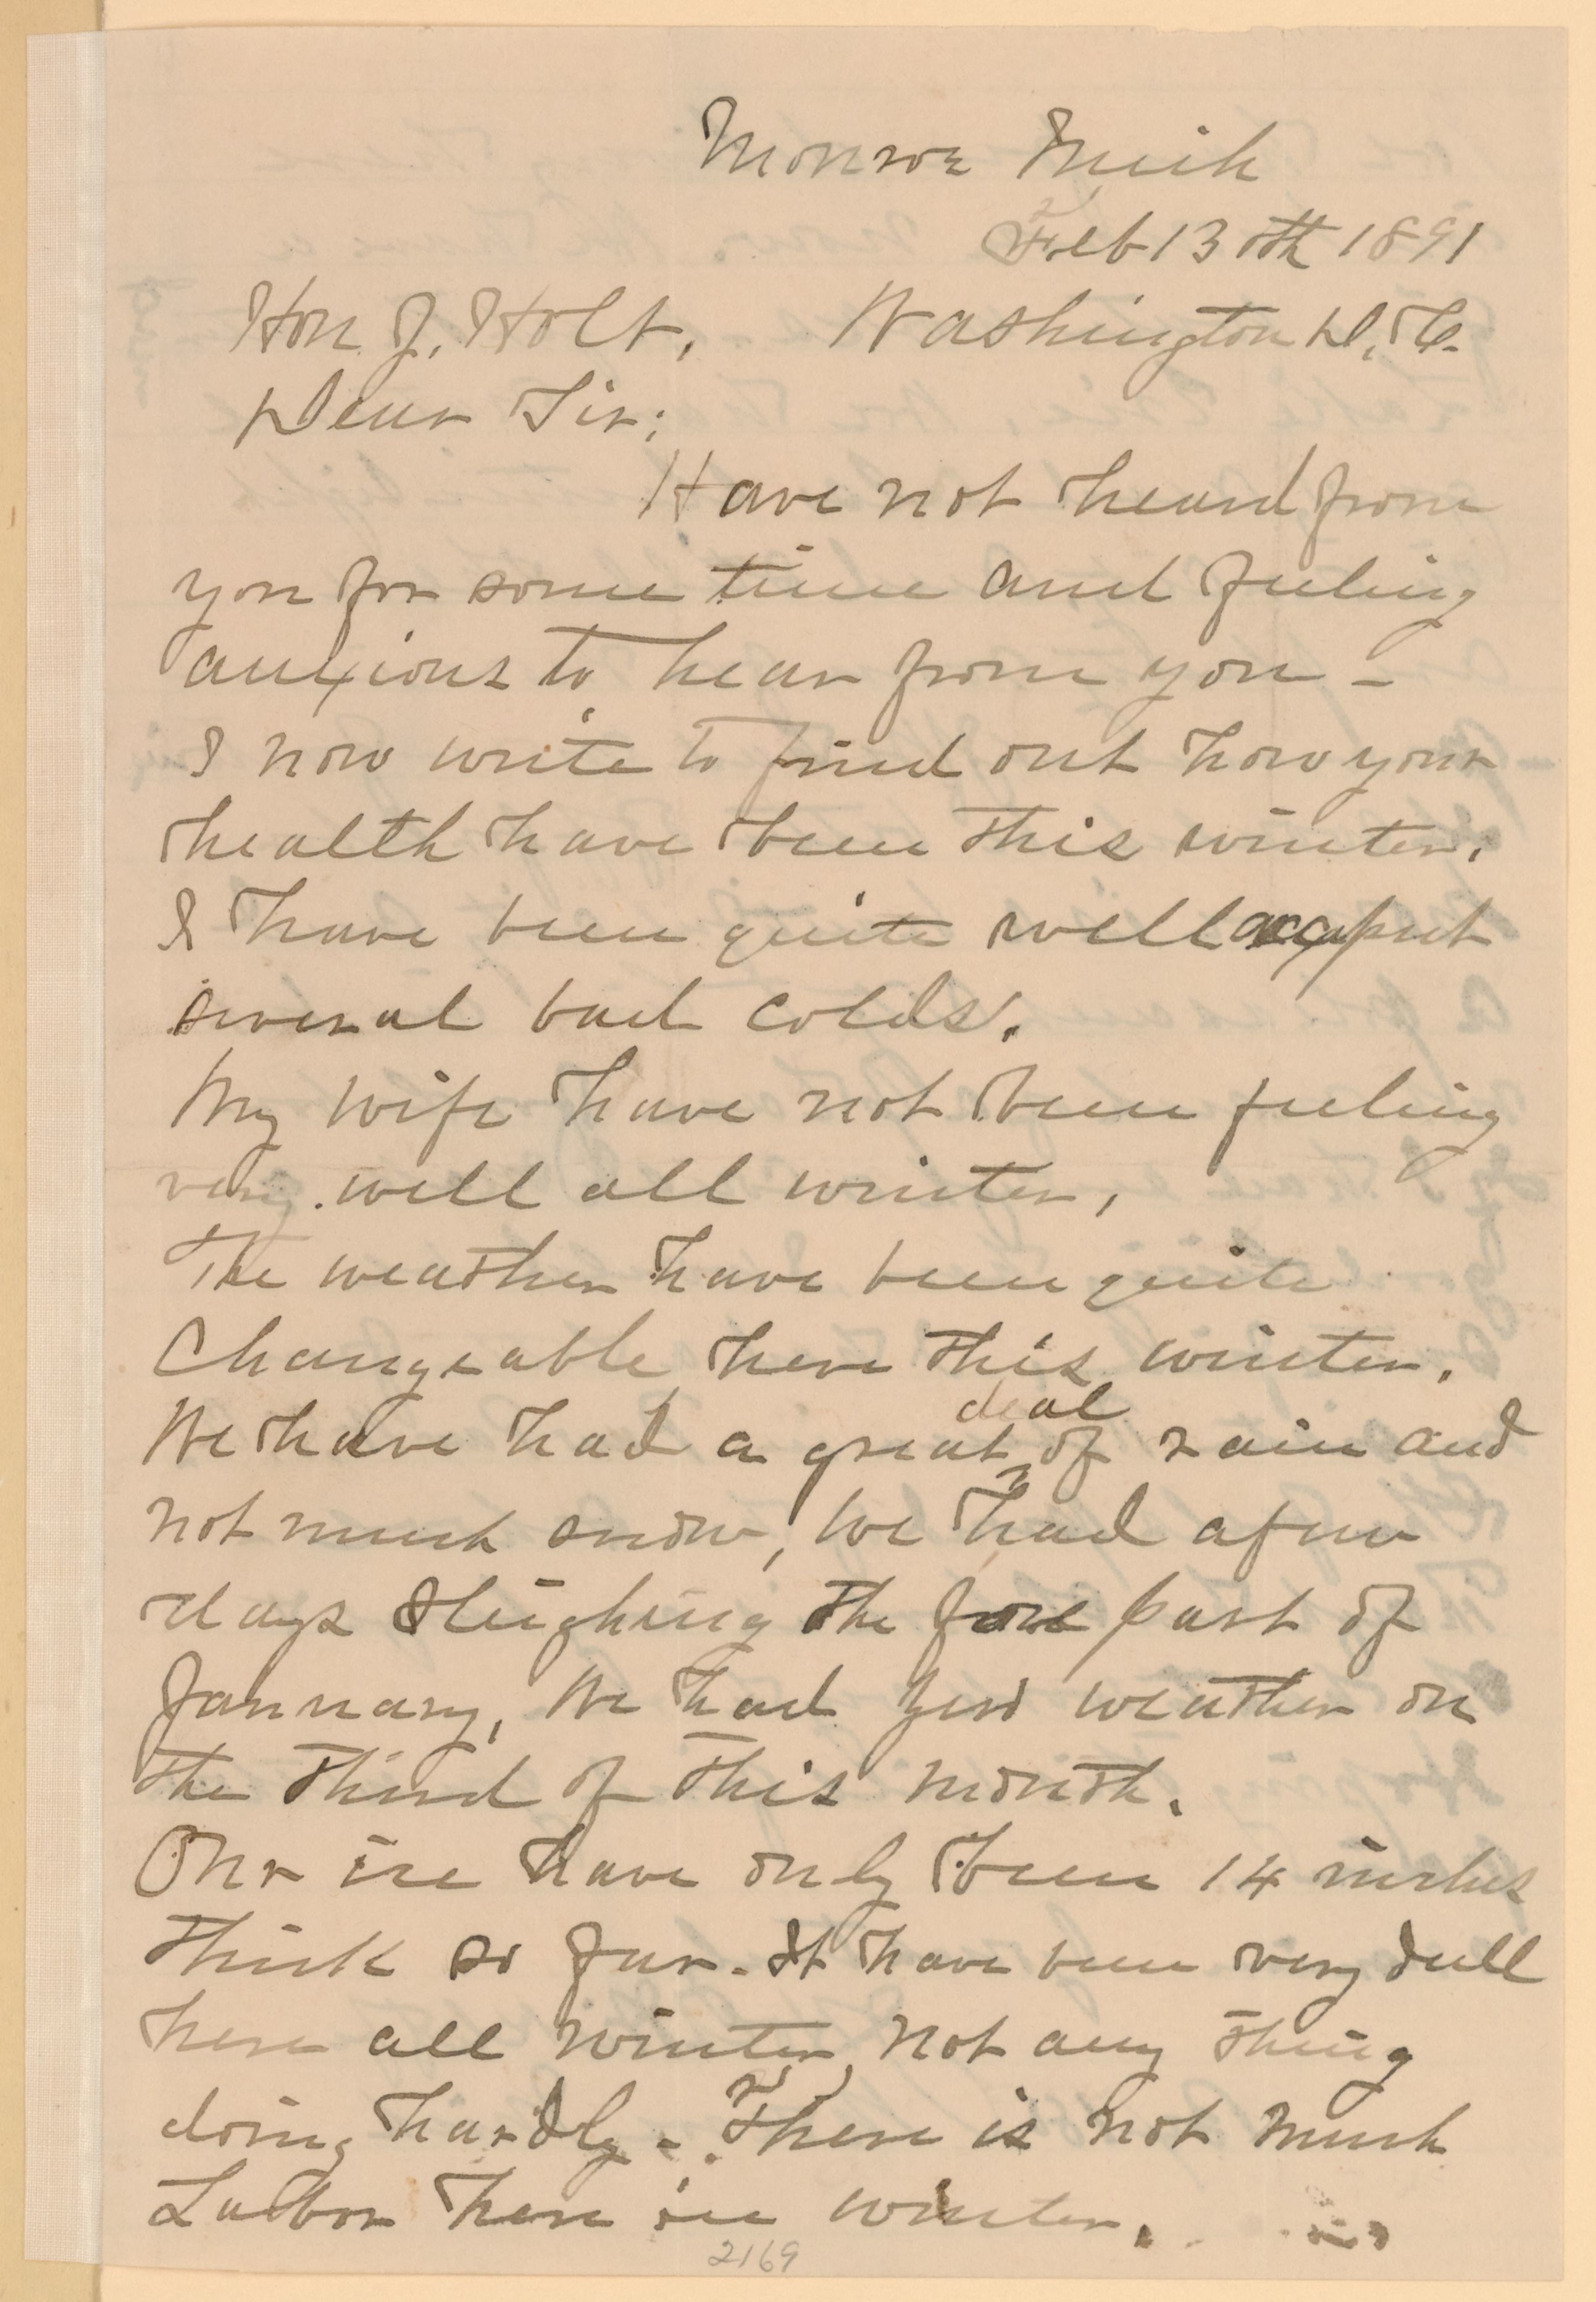 Monroe Mich
Feb 13th 1891
Hon. J. Holt, Washington D. C.
Dear Sir;
Have not heard from
you for some time and feeling
anxious to hear from you –
I now write to find out how your
health have been this winter.
I have been quite well accept
several bad colds.
My wife have not been feeling
very well all winter,
The weather have been quite
Changeable here this winter.
We have had a great deal of rain and
not much snow, We had a few
days Sleighing the fore part of
January, We had zero weather on
the third of this month.
Our ice have only been 14 inches
thick so far. It have been very dull
here all winter, not any thing
doing hardly – There is not much
Labor here in winter.
2169